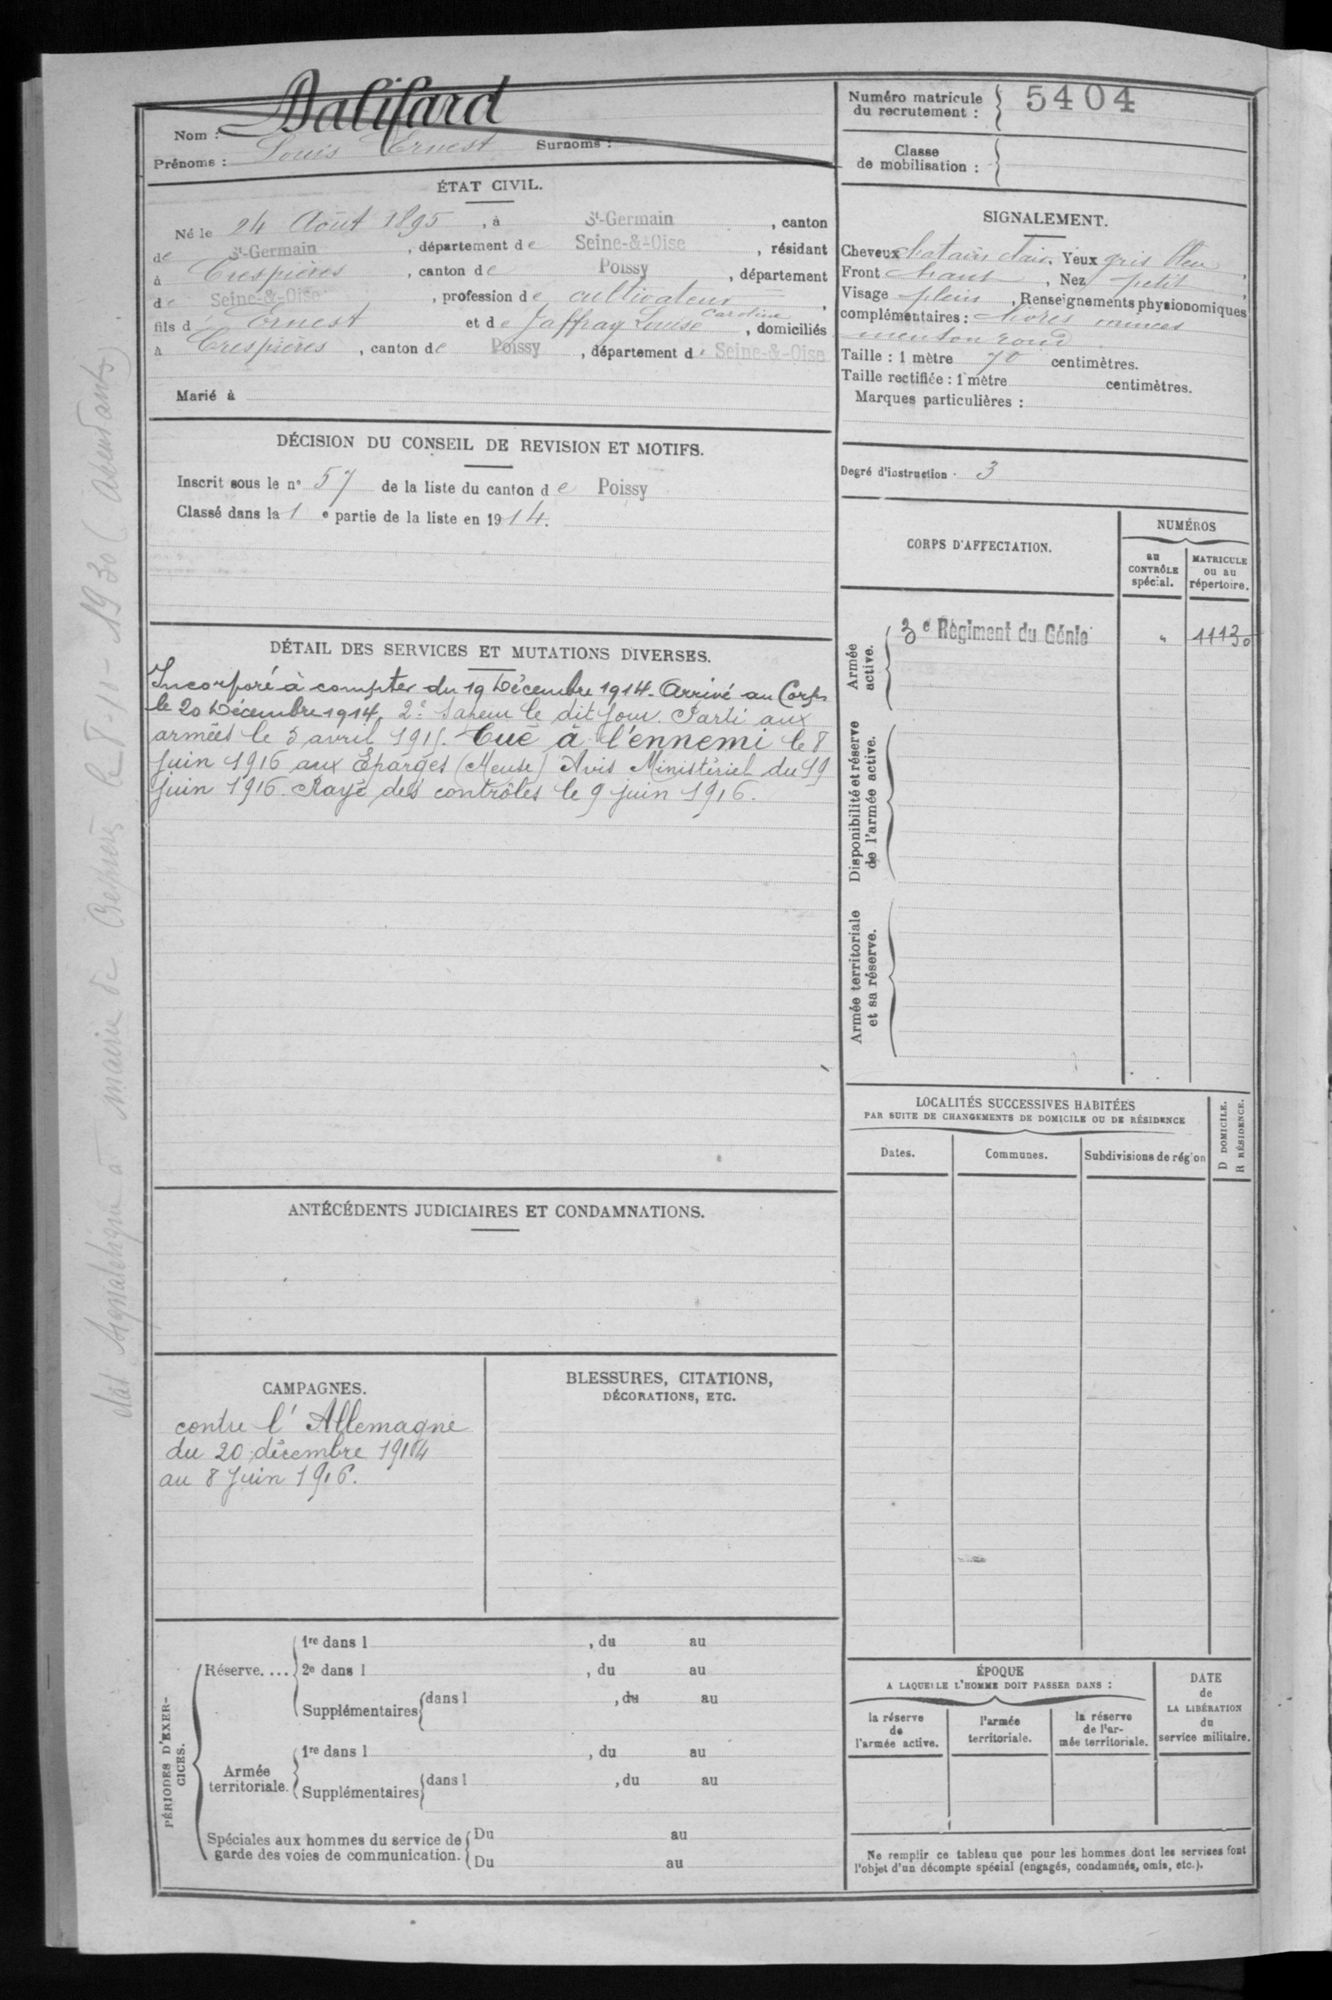 Nom : Dalifard
Prénoms : Louis Ernest Surnoms :
Numéro matricule du recrutement : 5404
Classe de mobilisation :
ÉTAT CIVIL.
Né le 24 Août 1895, à St-Germain, canton
de St-Germain, département de Seine-&-Oise, résidant
à Crespières, canton de Poissy, département
de Seine-&-Oise, profession de cultivateur,
fils d Ernest et de Jaffray Louise Caroline, domiciliés
à Crespières, canton de Poissy, département de Seine-&-Oise
Marié à
SIGNALEMENT.
Cheveux chatain clair. Yeux gris bleu,
Front haut, Nez petit,
Visage plein, Renseignements physionomiques
complémentaires : lèvres minces
menton rond
Taille : 1 mètre 70 centimètres.
Taille rectifiée : 1 mètre centimètres.
Marques particulières :
Degré d'instruction 3
DÉCISION DU CONSEIL DE REVISION ET MOTIFS.
Inscrit sous le n° 57 de la liste du canton de Poissy
Classé dans la 1 e partie de la liste en 1914.
DÉTAIL DES SERVICES ET MUTATIONS DIVERSES.
Incorporé à compter du 19 Décembre 1914. Arrivé au Corps
le 20 Décembre 1914, 2e Sapeur le dit jour. Parti aux
armées le 5 avril 1915. Tué à l'ennemi le 8
Juin 1916 aux Eparges (Meuse) Avis Ministériel du 19
Juin 1916. Rayé des contrôles le 9 juin 1916.
CORPS D'AFFECTATION.
NUMÉROS
au CONTRÔLE spécial.
MATRICULE ou au répertoire.
Armée active.
3e Régiment du Génie " 11130
Disponibilité et réserve de l'armée active.
Armée territoriale et sa réserve.
LOCALITÉS SUCCESSIVES HABITÉES
PAR SUITE DE CHANGEMENTS DE DOMICILE OU DE RÉSIDENCE
Dates. Communes. Subdivisions de région
D DOMICILE.
R RÉSIDENCE.
ANTÉCÉDENTS JUDICIAIRES ET CONDAMNATIONS.
CAMPAGNES.
contre l'Allemagne
du 20 décembre 1914
au 8 Juin 1916.
BLESSURES, CITATIONS,
DÉCORATIONS, ETC.
PÉRIODES D'EXERCICES.
Réserve.... 1re dans l , du au
2e dans l , du au
Supplémentaires dans l , du au
Armée territoriale. 1re dans l , du au
Supplémentaires dans l , du au
Spéciales aux hommes du service de Du au
garde des voies de communication. Du au
ÉPOQUE
A LAQUELLE L'HOMME DOIT PASSER DANS :
la réserve de l'armée active.
l'armée territoriale.
la réserve de l'armée territoriale.
DATE de LA LIBÉRATION du service militaire.
Ne remplir ce tableau que pour les hommes dont les services font
l'objet d'un décompte spécial (engagés, condamnés, omis, etc.).
état signalétique à mairie de Crespières le 8-10-1930 (Ascendants)